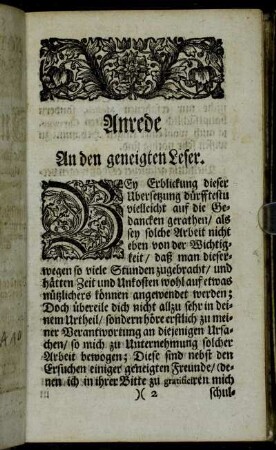 Anrede
An den geneigten Leser.
BEy Erblickung dieser
Ubersetzung dürfftestu
vielleicht auf die Ge-
dancken gerathen/ als
sey solche Arbeit nicht
eben von der Wichtig-
keit/ daß man dieser-
wegen so viele Stunden zugebracht/ und
hätten Zeit und Unkosten wohl auf etwas
nützlichers können angewendet werden;
Doch übereile dich nicht allzu sehr in dei-
nem Urtheil/ sondern höre erstlich zu mei-
ner Verantwortung an diejenigen Ursa-
chen/ so mich zu Unternehmung solcher
Arbeit bewogen; Diese sind nebst den
Ersuchen einiger geneigten Freunde/ (de-
nen ich in ihrer Bitte zu gratificiren mich
)( 2 schul-